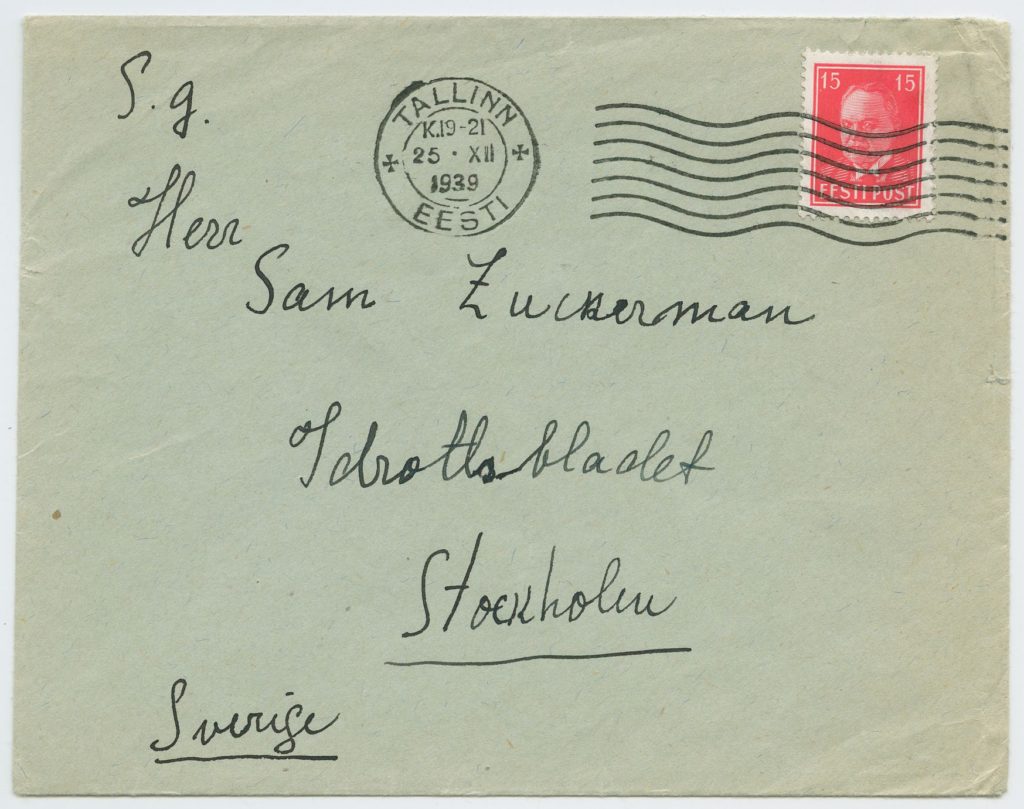 S. g.
TALLINN
K.19-21
25 · XII
1939
EESTI
15 15
EESTI POST
Herr
Sam Zuckerman
Idrottsbladet
Stockholm
Sverige